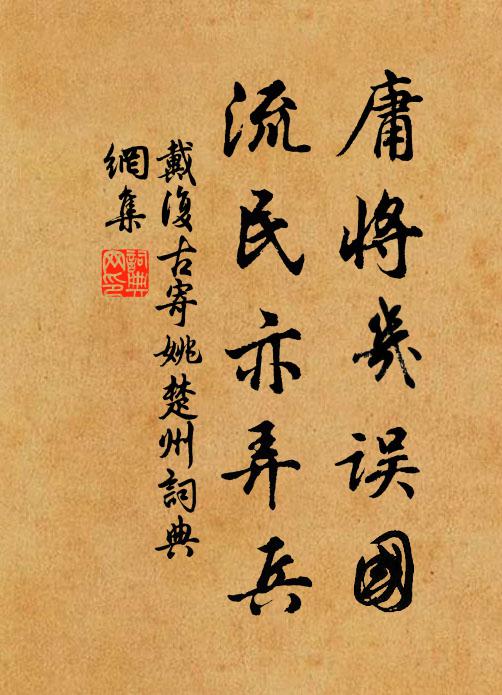 庸将幾误國
流民亦弄兵
戴復古寄姚楚州詞典
網集
詞典
网印